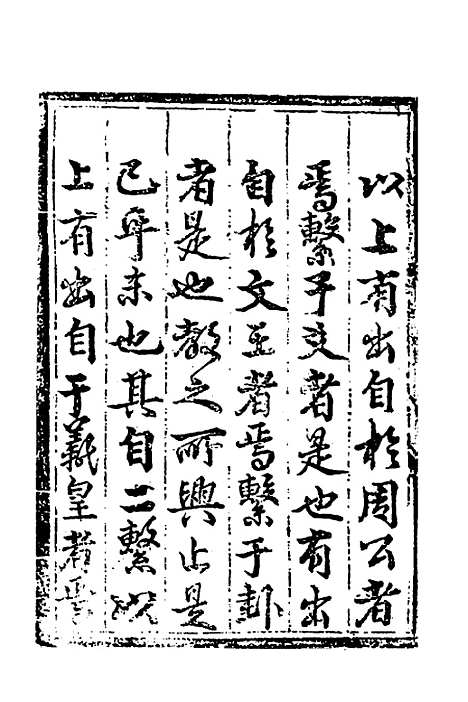 以上有出自於周公者
焉繫于爻者是也有出
自於文王者焉繫于卦
者是也教之所興止是
已乎未也其自二繫以
上有出自于羲皇者焉